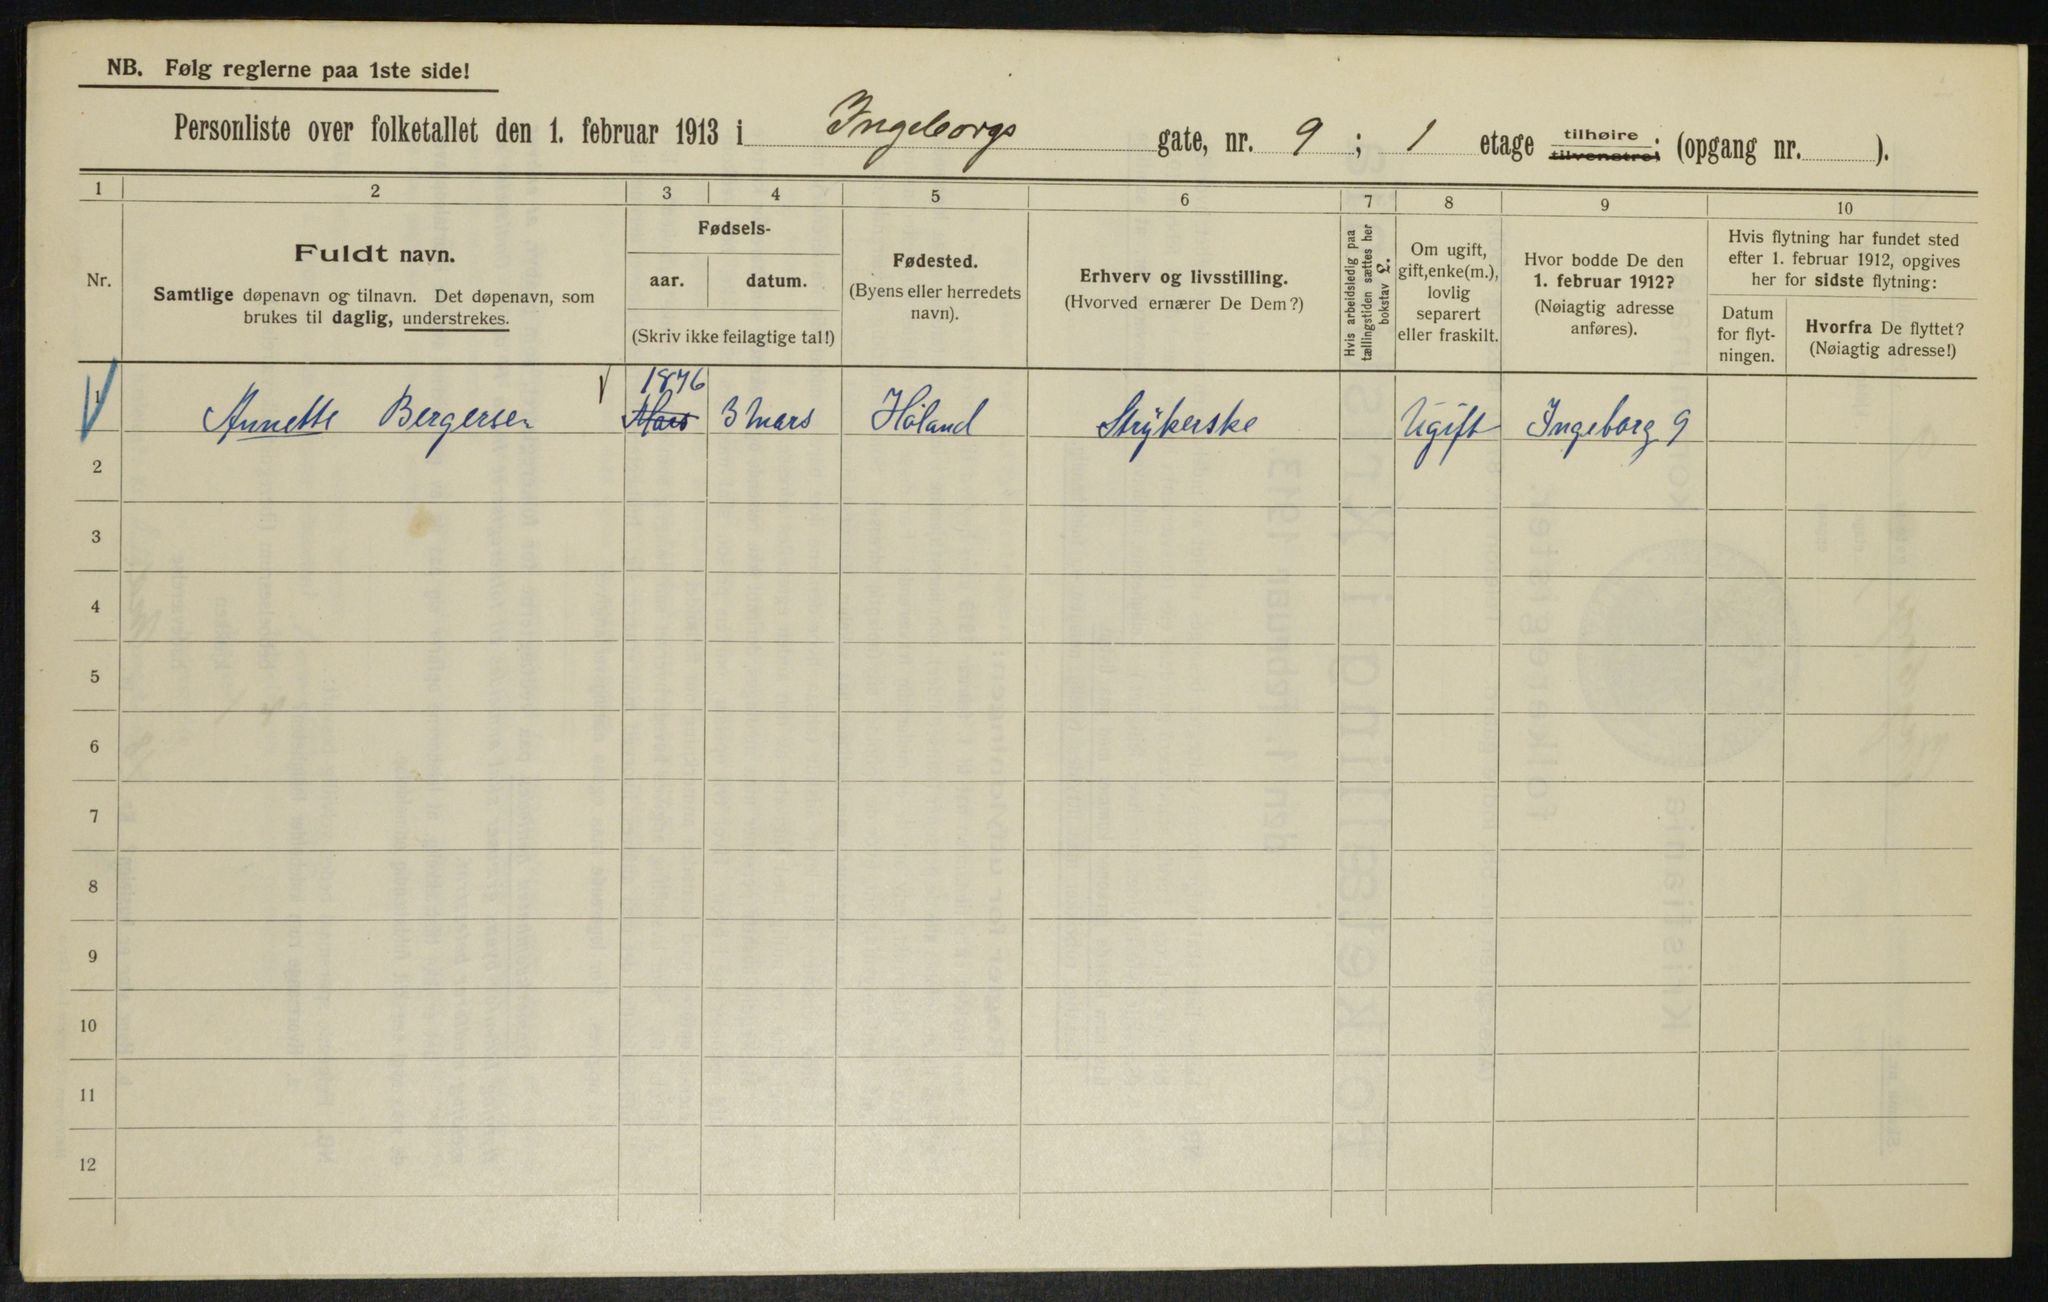 NB. Følg reglerne paa 1ste side!
Personliste over folketallet den 1. februar 1913 i Ingeborgs gate, nr. 9 ; 1 etage tilhøire tilvenstre; (opgang nr. ).
1 2 3 4 5 6 7 8 9 10
Nr.
Fuldt navn.
Samtlige døpenavn og tilnavn. Det døpenavn, som
brukes til daglig, understrekes.
Fødsels-
aar. datum.
(Skriv ikke feilagtige tal!)
Fødested.
(Byens eller herredets
navn).
Erhverv og livsstilling.
(Hvorved ernærer De Dem?)
Hvis arbeidsledig paa
tællingstiden sættes her
bokstav £.
Om ugift,
gift, enke(m.),
lovlig
separert
eller fraskilt.
Hvor bodde De den
1. februar 1912?
(Nøiagtig adresse
anføres).
Hvis flytning har fundet sted
efter 1. februar 1912, opgives
her for sidste flytning:
Datum
for flyt-
ningen.
Hvorfra De flyttet?
(Nøiagtig adresse!)
1876
1 Annette Bergersen Mars 3 Mars Høland Strykerske Ugift Ingeborg 9
2
3
4
5
6
7
8
9
10
11
12